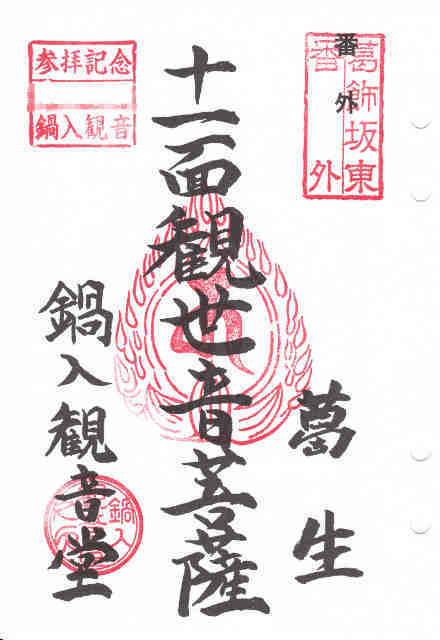 葛飾坂東
番外
番外
葛生
十一面観世音菩薩
参拝記念
鍋入観音
鍋入観音堂
鍋入